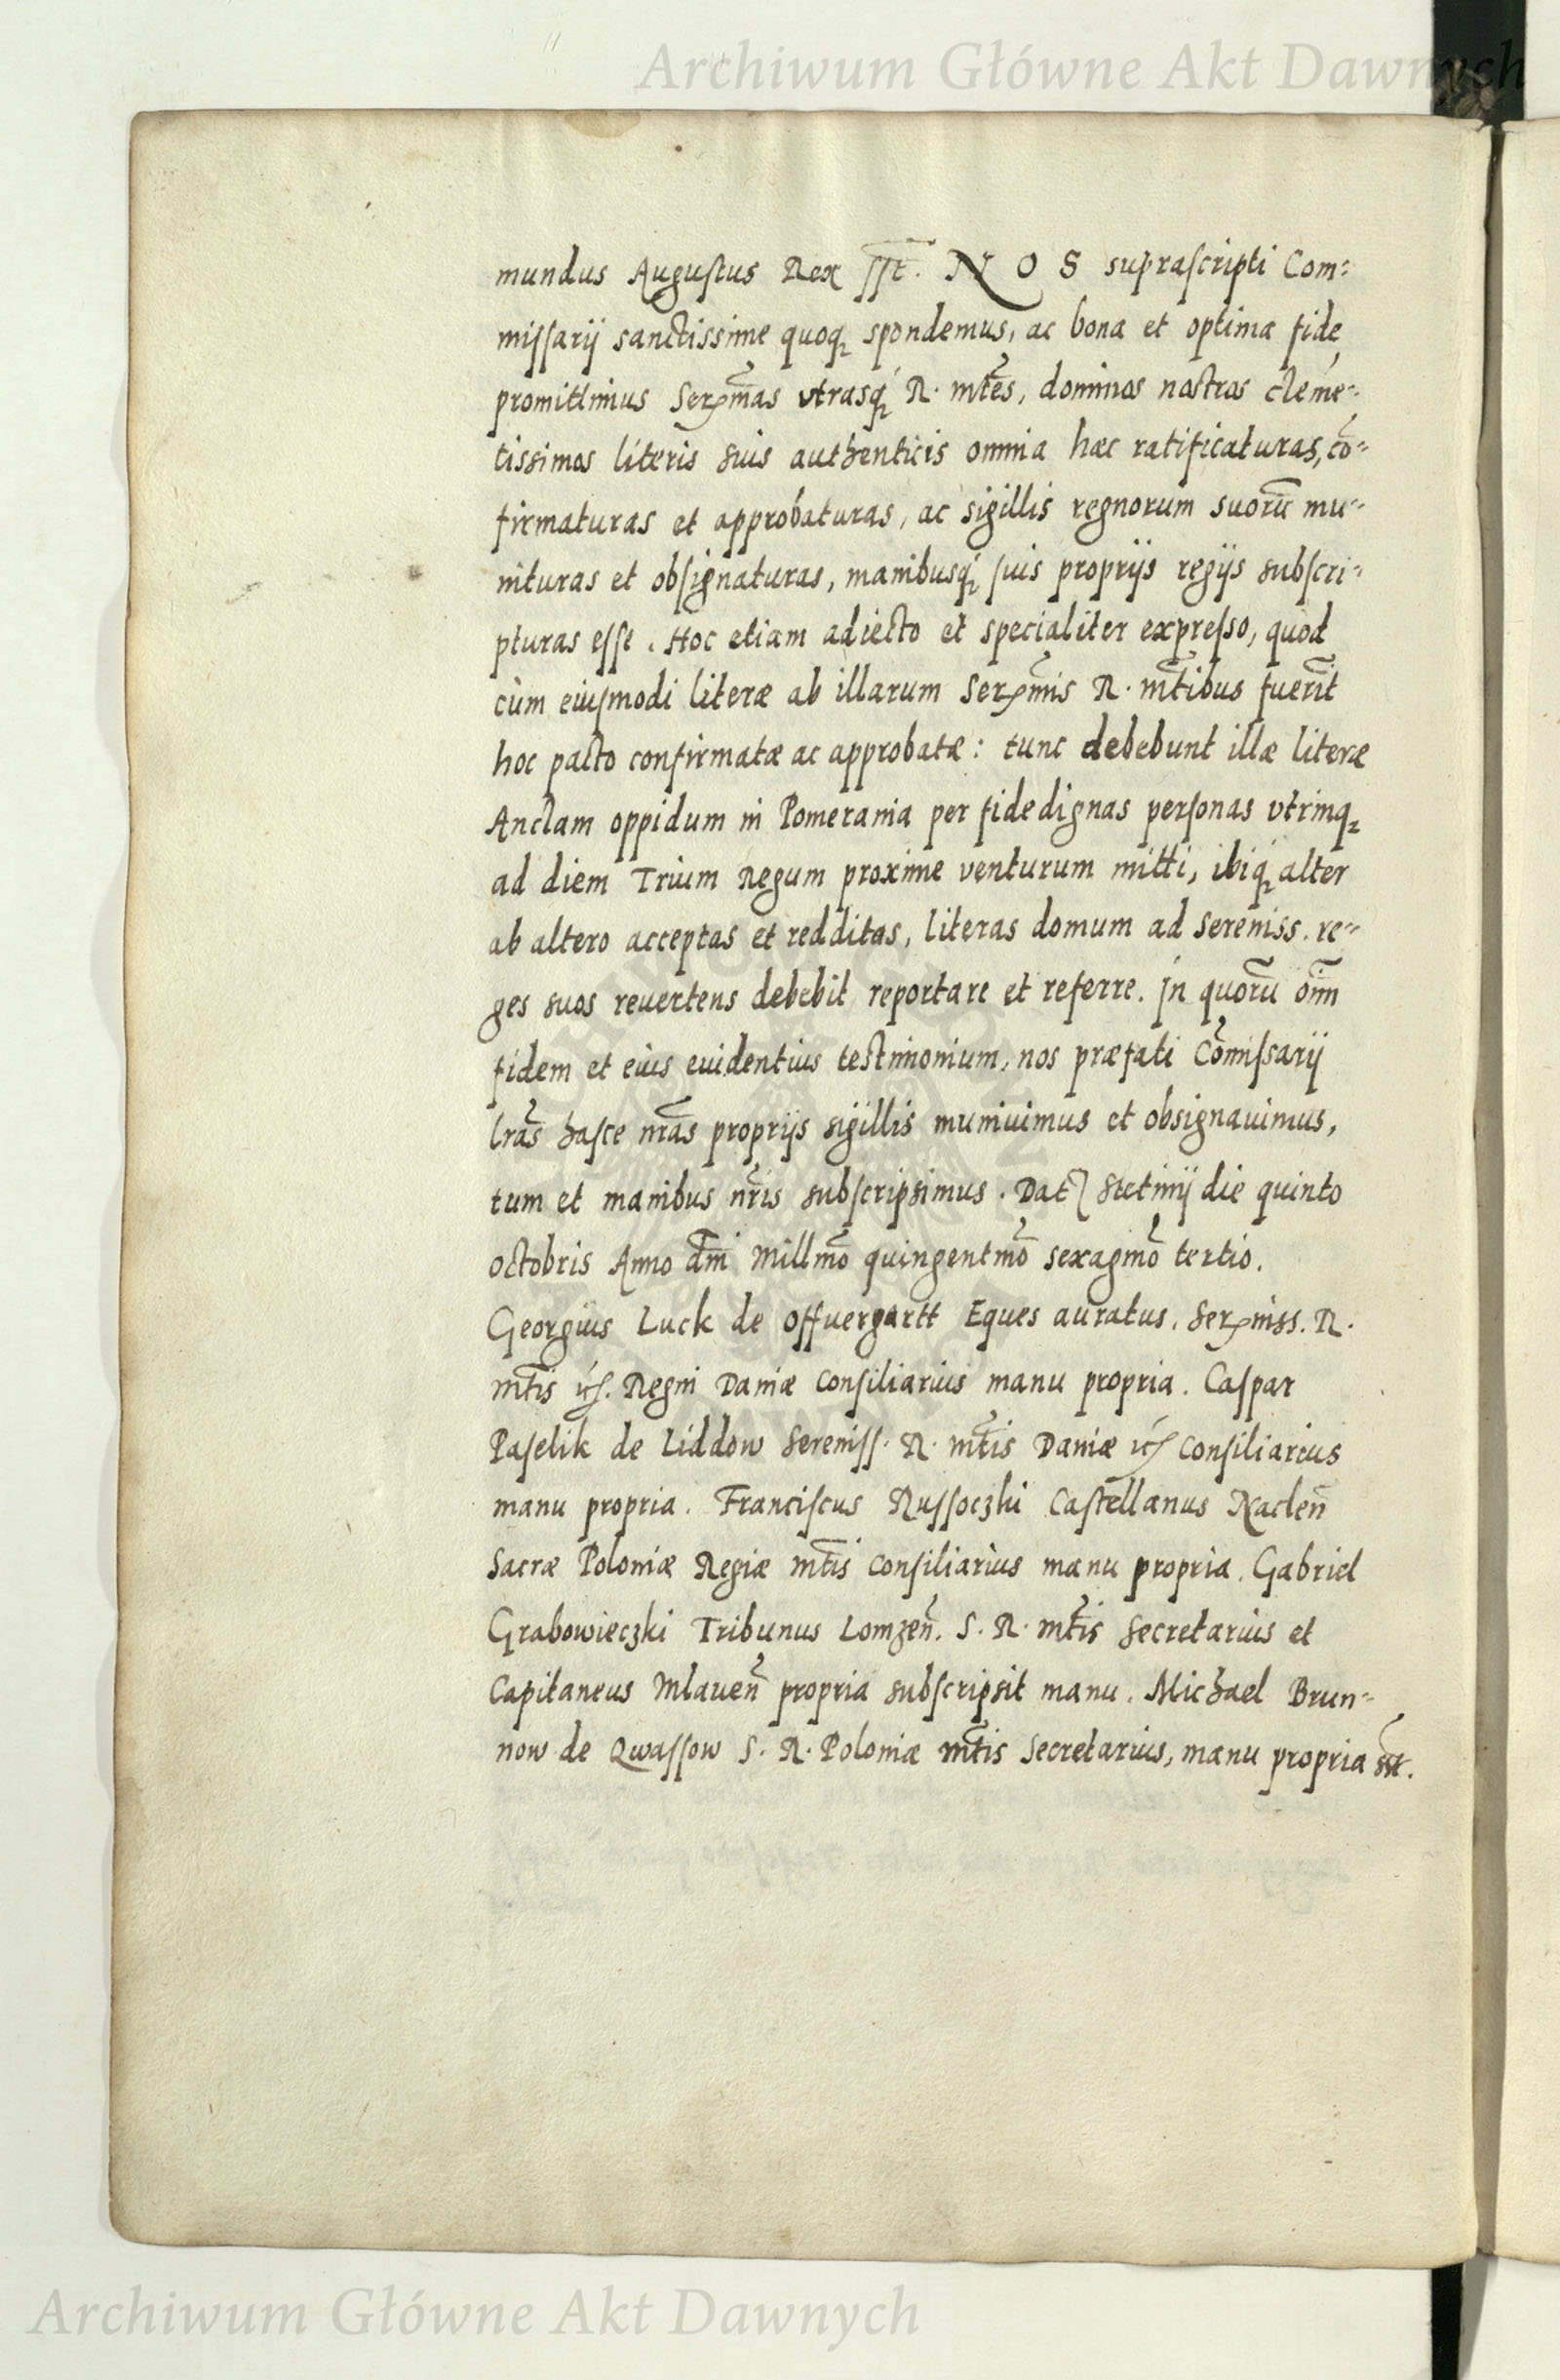 Archiwum Główne Akt Dawnych
mundus Augustus Rex sst. NOS suprascripti Com:
missarij sanctissime quoq₃ spondemus, ac bona et optima fide
promittimus Serᵉm̃as vtrasq₃ R. mt̃es, dominos nostros cleme͂-
tissimos literis suis authenticis omnia hæc ratificaturas, cō-
firmaturas et approbaturas, ac sigillis regnorum suorū mu-
nituras et obsignaturas, manibusq₃ suis proprijs regijs subscri-
pturas esse. Hoc etiam adiecto et specialiter expresso, quod
cùm eiusmodi literæ ab illarum Serᵉm̃is R. mt̃ibus fuerīt
hoc pacto confirmatæ ac approbatæ: tunc debebunt illæ literæ
Anclam oppidum in Pomerania per fidedignas personas vtrinq₃
ad diem Trium Regum proxime venturum mitti, ibiq₃ alter
ab altero acceptas et redditas, literas domum ad sereniss. re-
ges suos reuertens debebit reportare et referre. In quorū om̄
fidem et eius euidentius testimonium, nos præfati Com̄issarij
lr̃as hasce nr̃as proprijs sigillis muniuimus et obsignauimus,
tum et manibus nr̃is subscripsimus. Dat. Stetinij die quinto
octobris Anno dm̄i Millm̄o quingentm̄o sexagm̄o tertio.
Georgius Luck de Offuergartt Eques auratus. Serᵉniss. R.
mt̃is ꝛc. Regni Daniæ Consiliarius manu propria. Caspar
Paselik de Liddow Sereniss. R. mt̃is Daniæ ꝛc Consiliarius
manu propria. Franciscus Russoczki Castellanus Naclen̄
Sacræ Poloniæ Regiæ mt̃is consiliarius manu propria. Gabriel
Grabowieczki Tribunus Lomzen̄. S. R. mt̃is Secretarius et
Capitaneus Mlauen̄ propria subscripsit manu. Michael Brun-
now de Qwassow S. R. Poloniæ mt̃is Secretarius, manu propria sst.
Archiwum Główne Akt Dawnych